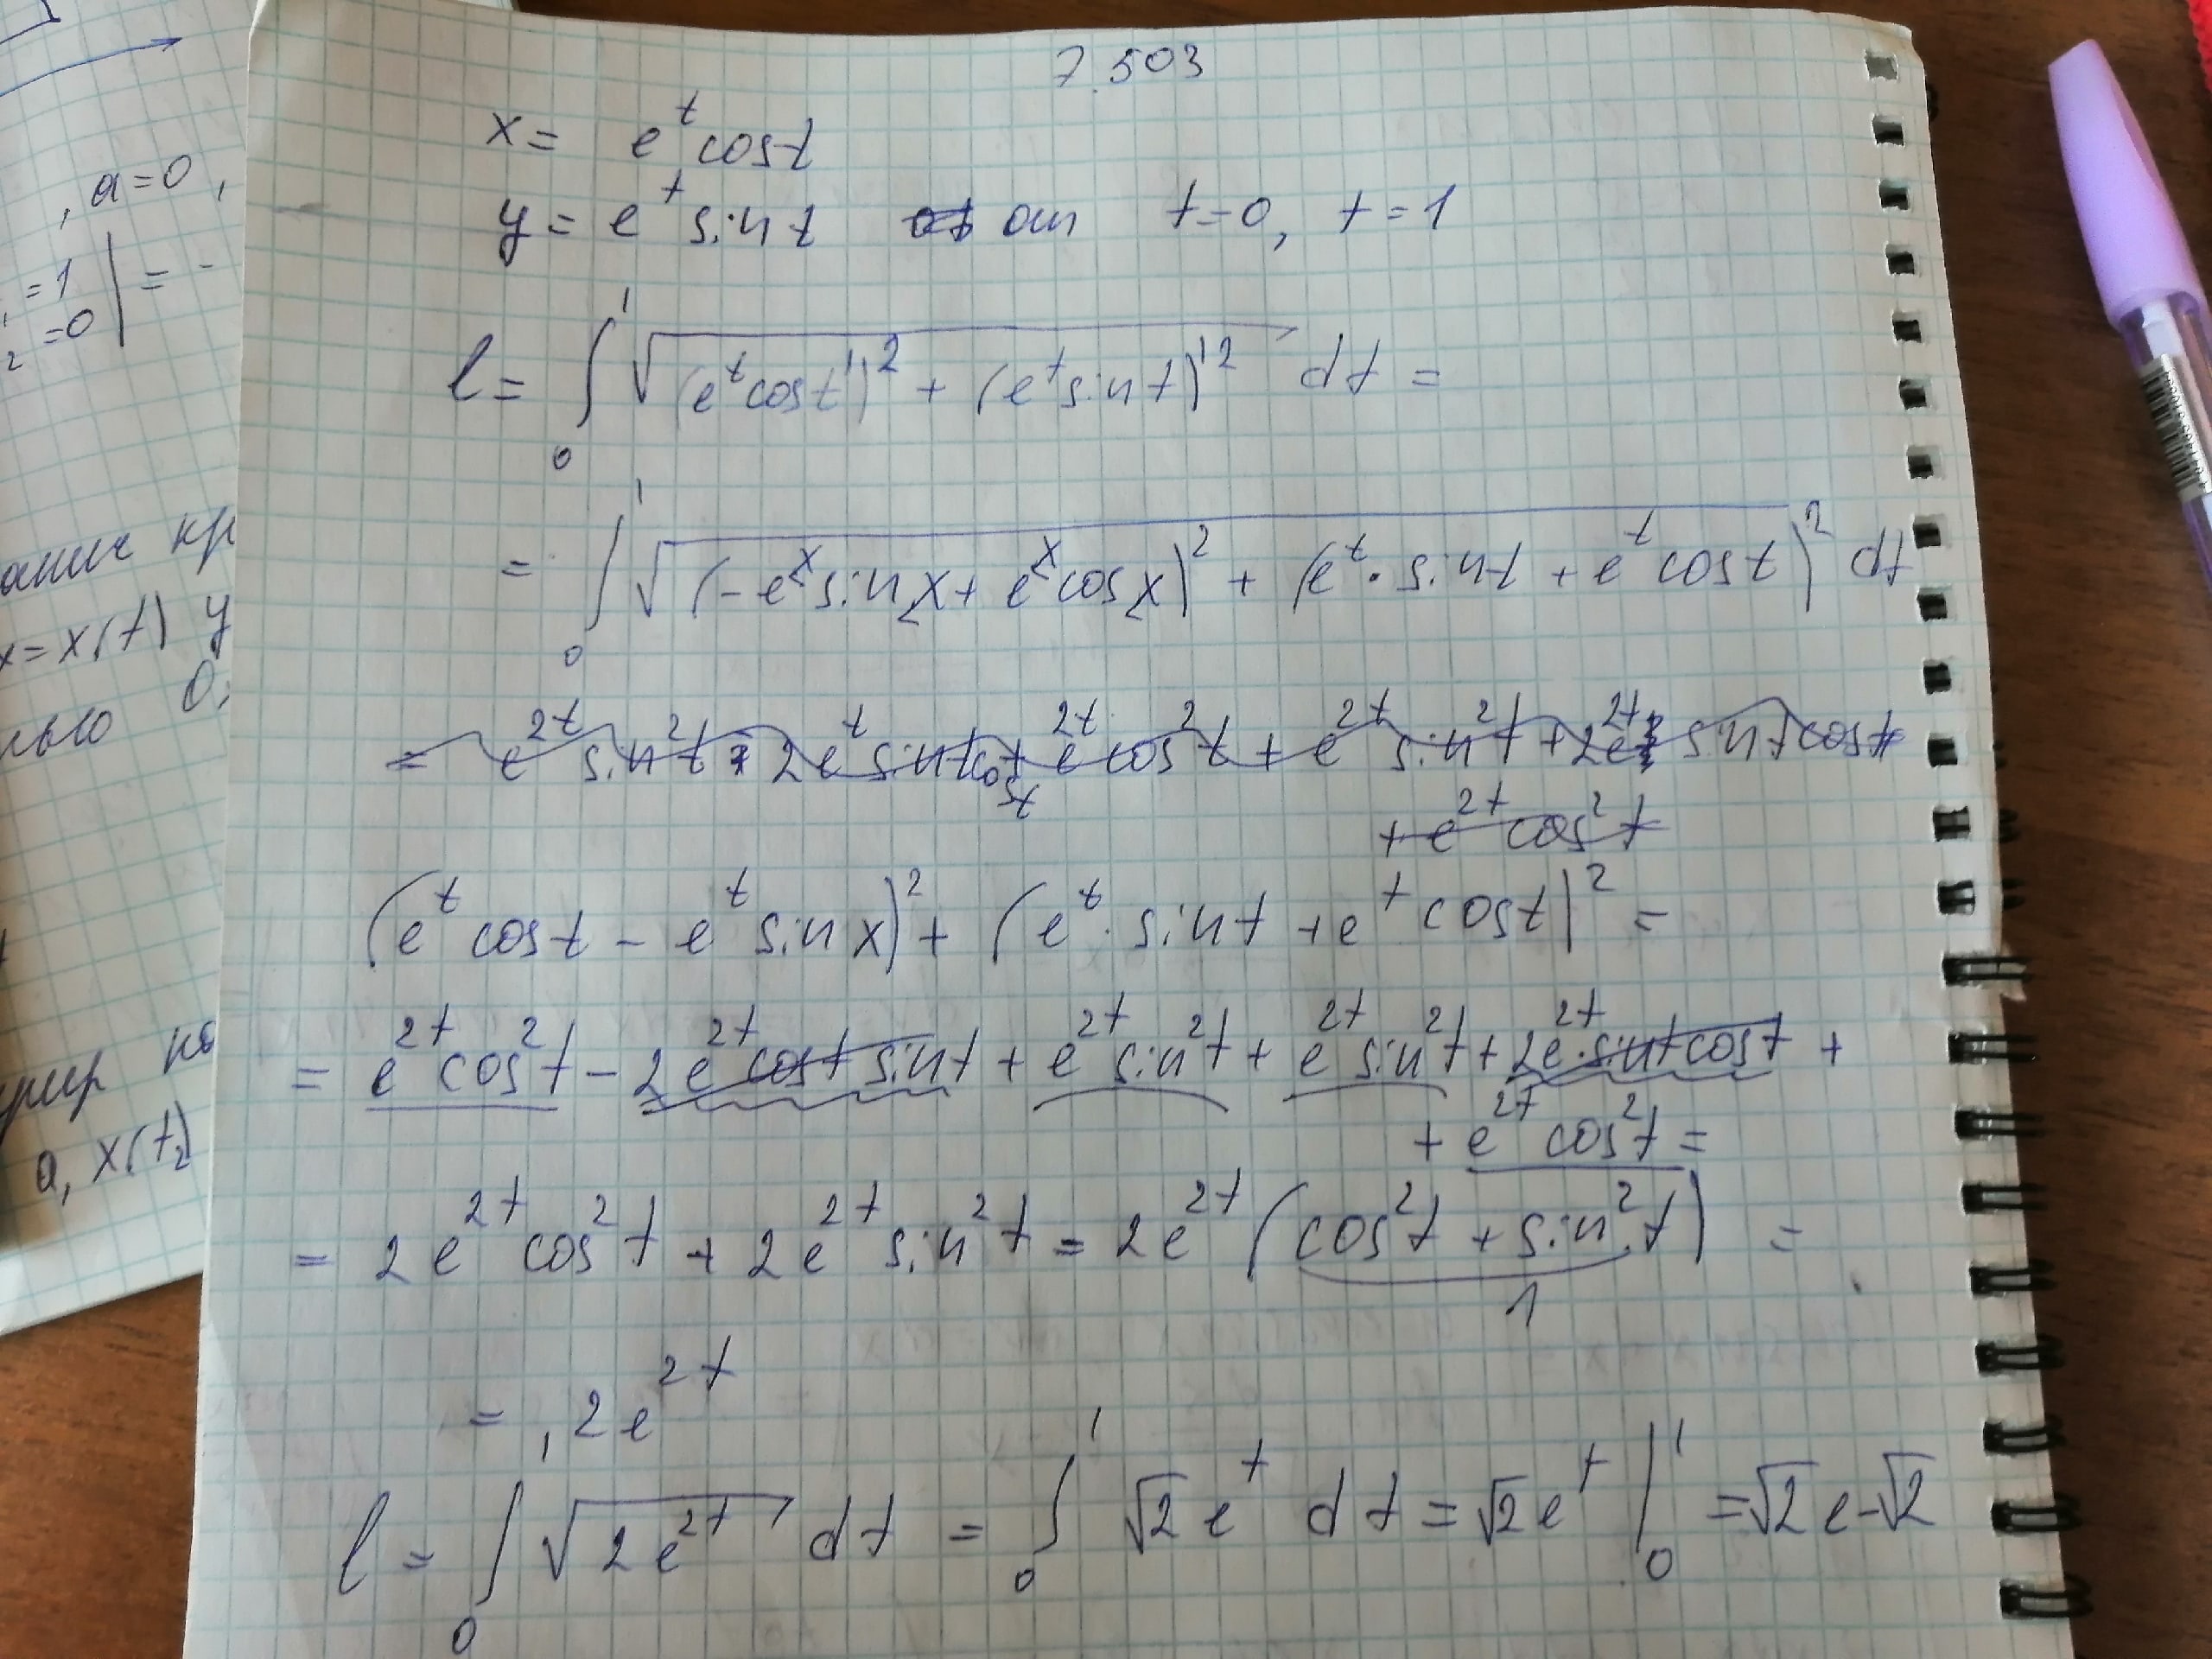 7.503
x = e^t cos t
y = e^t sin t от t=0, t=1
l = ∫₀¹ √((e^t cos t)'² + (e^t sin t)'²) dt =
= ∫₀¹ √((-e^x sin x + e^x cos x)² + (e^t · sin t + e^t cos t)²) dt
= e^2t sin²t + 2e^t sin t cos t e^2t cos²t + e^2t sin²t + 2e^2t sin t cos t
+ e^2t cos²t
(e^t cos t - e^t sin x)² + (e^t · sin t + e^t cos t)² =
= e^2t cos²t - 2e^2t cos t sin t + e^2t sin²t + e^2t sin²t + 2e^2t · sin t cos t +
+ e^2t cos²t =
= 2e^2t cos²t + 2e^2t sin²t = 2e^2t (cos²t + sin²t) =
1
= 2e^2t
l = ∫₀¹ √(2e^2t) dt = ∫₀¹ √2 e^t dt = √2 e^t |₀¹ = √2 e - √2
, a=0,
=1
2 =0 | = -
x = x(t) y
лью 0,
a, x(t₂)